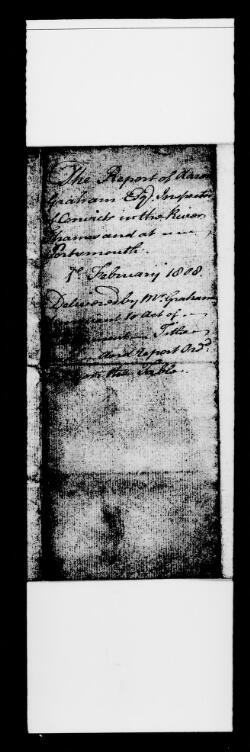 The Report of Aaron
Graham Esqr. Inspector
of Convicts in the River
Thames and at
Portsmouth.
1st February 1808.
Delivered by Mr. Graham
to Act of
Title
Report Ord.
the Table.